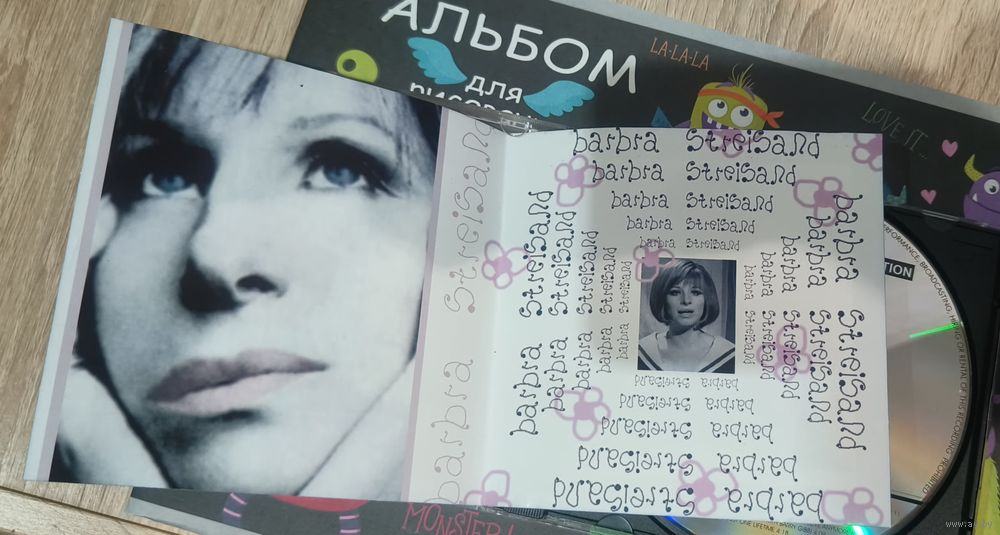 АЛЬБОМ
для
LA-LA-LA
LOVE IT...
barbra Streisand
barbra Streisand
barbra Streisand
barbra Streisand
barbra Streisand
barbra Streisand
barbra Streisand
barbra Streisand
barbra Streisand
barbra Streisand
barbra Streisand
barbra Streisand
barbra Streisand
barbra Streisand
barbra Streisand
barbra Streisand
barbra Streisand
barbra Streisand
barbra Streisand
barbra Streisand
barbra Streisand
PERFORMANCE, BROADCASTING,
OF THIS RECORDING PROHIBITED
MONSTER